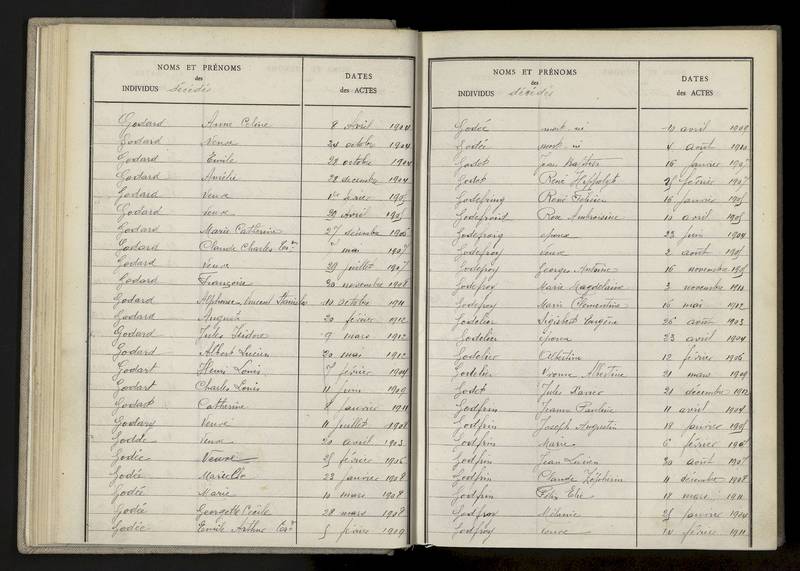 NOMS ET PRÉNOMS
des
INDIVIDUS décédés
DATES
des ACTES
Godard Anne Celine 8 Avril 1904
Godard Veuve 24 octobre 1904
Godard Emile 28 octobre 1904
Godard Aurélie 28 decembre 1904
Godard Veuve 1905
Godard Veuve 20 Avril 1905
Godard Marie Catherine 27 décembre 1906
Godard Claude Charles mai 1907
Godard Veuve 29 juillet 1907
Godard Françoise 30 novembre 1908
Godard Alphonse Vincent Stanislas 10 octobre 1911
Godard Auguste 20 février 1912
Godard Jules Isidore 9 mars 1912
Godard Albert Lucien 20 mai 1912
Godart Henri Louis 7 février 1904
Godart Charles Louis 11 juin 1909
Godart Catherine 8 janvier 1911
Godary Veuve 11 juillet 1908
Godde Veuve 20 avril 1903
Godée Veuve 25 février 1906
Godée Marielle 23 janvier 1908
Godée Marie 10 mars 1908
Godée Georgette Cécile 28 mars 1908
Godée Emile Arthur 5 février 1909
NOMS ET PRÉNOMS
des
INDIVIDUS décédés
DATES
des ACTES
Godée mort-né 10 avril 1909
Godée mort-né 4 août 1910
Godet Jean Baptiste 16 janvier 1907
Godet René Hippolyte 25 février 1907
René 16 janvier 1905
Godefroid Rose Ambroisine 10 avril 1905
Godefroy épouse 23 juin 1904
Godefroy veuve 2 août 1905
Godefroy Georges Antoine 16 novembre
Godefroy Marie Magdelaine 3 novembre 1911
Godefroy Marie Clementine 16 mai 1912
Godelier Sigisbert Eugène 26 août 1903
Godelier épouse 23 avril 1904
Godelier Albertine 12 février 1906
Godelier Yvonne Albertine 21 mars 1909
Godet Jules 21 décembre 1912
Godfrin Jeanne Pauline 11 avril 1904
Godfrin Joseph Augustin 18 janvier 1905
Godfrin Marie 6 février
Godfrin Jean Lucien 30 août 1907
Godfrin Claude Zéphirin 11 décembre 1908
Godfrin Félix Elie 18 mars 1911
Godfroy Mélanie 25 janvier 1904
Godfroy veuve 14 février 1911